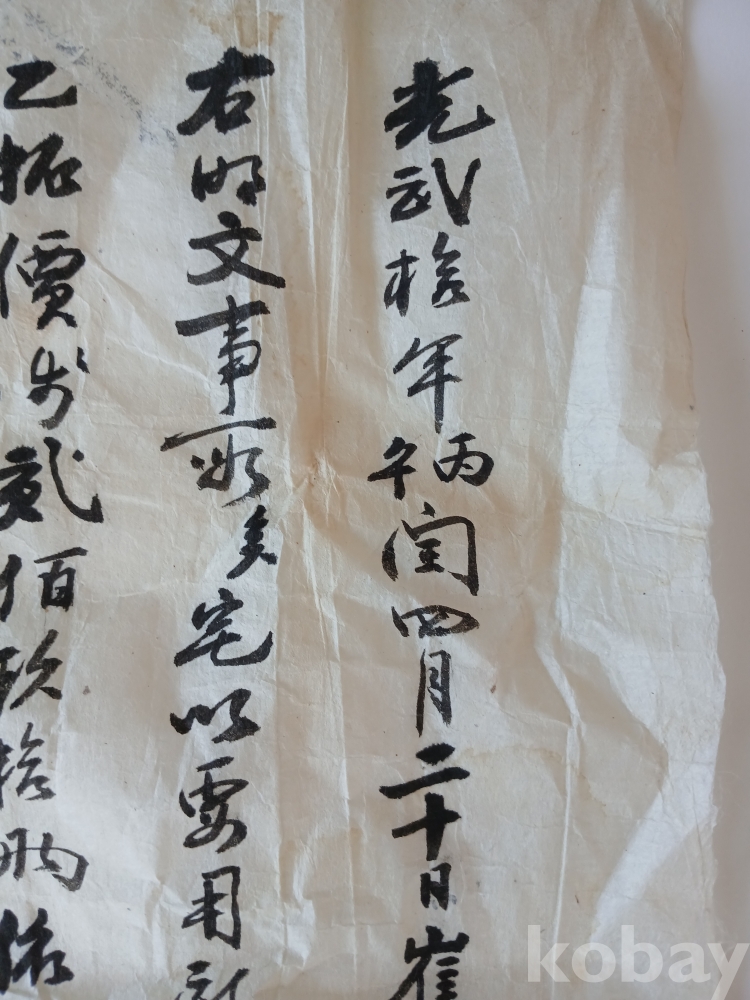 光武拾年丙午閏四月二十日崔
右明文事段矣宅以要用
乙折價戔貳佰玖拾兩依
kobay